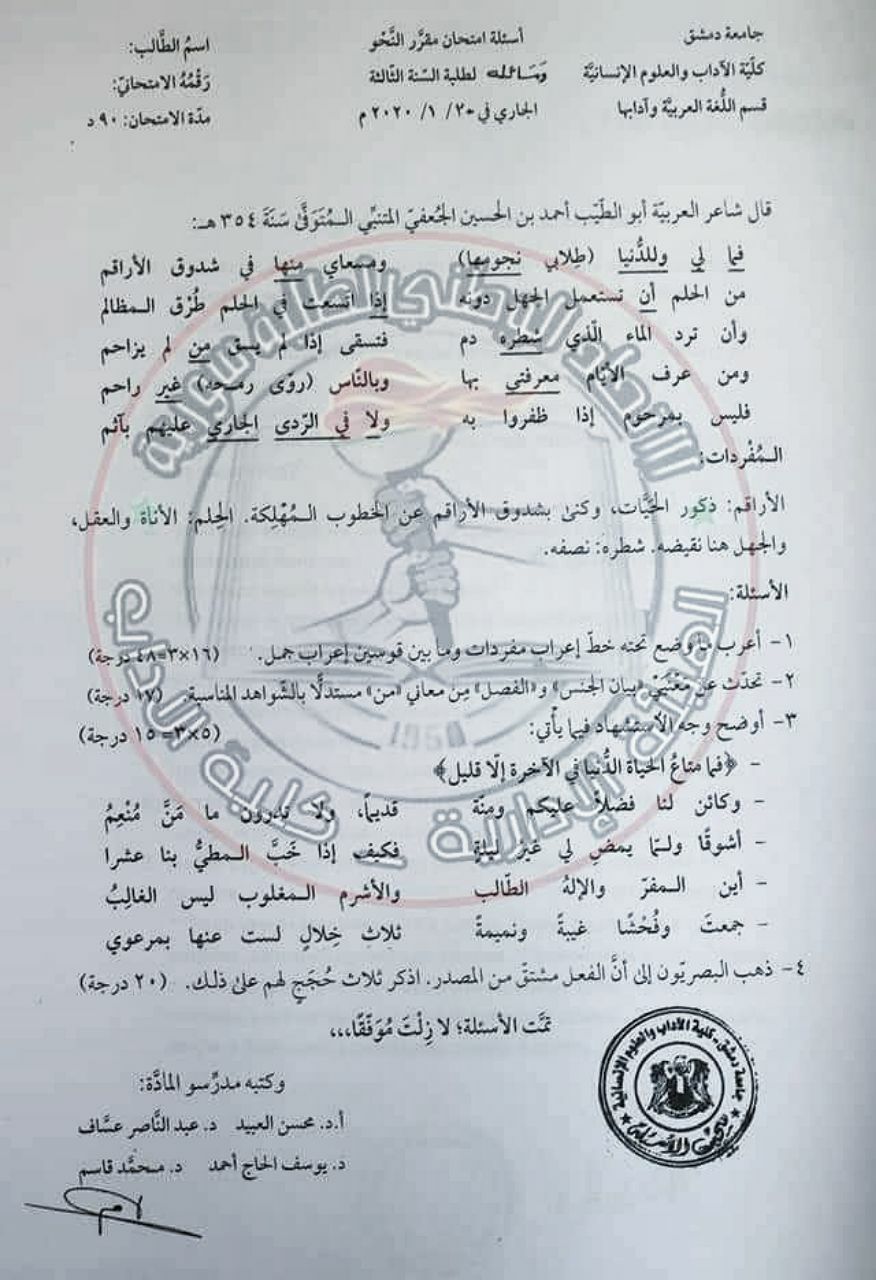 جامعة دمشق
كليّة الآداب والعلوم الإنسانيّة
قسم اللُّغة العربيّة وآدابها
أسئلة امتحان مقرَّر النَّحْو
وَمَسَائله لطلبة السّنة الثّالثة
الجاري في ٣٠/ ١/ ٢٠٢٠ م
اسمُ الطَّالب:
رَقْمُهُ الامتحانيّ:
مدّة الامتحان: ٩٠ د
قال شاعر العربيّة أبو الطّيّب أحمد بن الحسين الجُعفيّ المتنبّي المُتَوَفَّىٰ سَنَةَ ٣٥٤ هـ:
فما لي وللدُّنيا (طِلابي نجومها) ومسعاي منها في شدوق الأراقم
من الحلم أن تستعمل الجهل دونه إذا اتسعت في الحلم طُرْق المظالم
وأن ترد الماء الّذي شطره دم فتسقى إذا لم يسق من لم يزاحم
ومن عرف الأيّام معرفتي بها وبالنّاس (روّى رمحه) غير راحم
فليس بمرحوم إذا ظفروا به ولا في الرّدى الجاري عليهم بآثم
المُفْردات:
الأراقم: ذكور الحَيَّات، وكنىٰ بشدوق الأراقم عن الخطوب المُهْلِكة. الحِلم: الأناة والعقل،
والجهل هنا نقيضه. شطره: نصفه.
الأسئلة:
١- أعرب ما وضع تحته خطّ إعراب مفردات وما بين قوسين إعراب جمل. (١٦×٣=٤٨ درجة)
٢- تحدّث عن مَعْنَيَيْ «بيان الجنس» و«الفصل» مِن معاني «من» مستدلًّا بالشّواهد المناسبة. (١٧ درجة)
٣- أوضح وجه الاستشهاد فيما يأتي: (٥×٣=١٥ درجة)
- ﴿فما متاعُ الحياة الدُّنيا في الآخرة إلّا قليل﴾
- وكائن لنا فضلاً عليكم ومِنّة قديماً، ولا تدرون ما مَنَّ مُنْعِمُ
- أشوقًا ولمّا يمضِ لي غيرُ ليلةٍ فكيف إذا خَبَّ المطيُّ بنا عشرا
- أين المفرّ والإلهُ الطّالب والأشرم المغلوب ليس الغالِبُ
- جمعتَ وفُحْشًا غيبةً ونميمةً ثلاثَ خِلالٍ لست عنها بمرعوي
٤- ذهب البصريّون إلى أنَّ الفعل مشتقّ من المصدر. اذكر ثلاث حُجَجٍ لهم علىٰ ذلك. (٢٠ درجة)
تمَّت الأسئلة؛ لا زِلْتَ مُوَفَّقًا،،،
وكتبه مدرِّسو المادَّة:
أ.د. محسن العبيد د. عبد النَّاصر عسَّاف
د. يوسف الحاج أحمد د. محمَّد قاسم
جامعة دمشق - كلية الآداب والعلوم الإنسانية
الاتحاد الوطني لطلبة سورية
الهيئة الإدارية _ كلية الآداب
1950